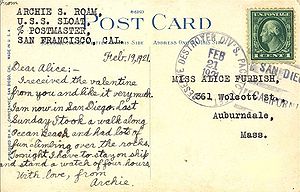 From
ARCHIE S. ROAM,
U.S.S. SLOAT,
℅ POSTMASTER,
SAN FRANCISCO, CAL.
POST CARD
THIS SIDE
ADDRESS
Feb. 19, 1921
Dear Alice:-
I received the valentine
from you and like it very much.
I am now in San Diego. Last
Sunday I took a walk along
Ocean Beach and had lots of
fun climbing over the rocks.
Tonight I have to stay on ship
and stand a watch of four hours.
With love, from
Archie.
DESTROYER DIV'S. PAC.
FEB
21
1921
SAN DIEGO
CALIFORNIA
MISS ALICE FURBISH,
361 Wolcott St.
Auburndale,
Mass.